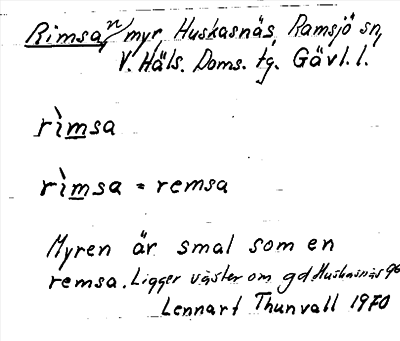 Rimsan, myr, Huskasnäs, Ramsjö sn,
V. Häls. Doms. tg. Gävl. l.
rìmsa
rìmsa = remsa
Myren är smal som en
remsa. Ligger väster om gd Huskasnäs
Lennart Thunvall 1970